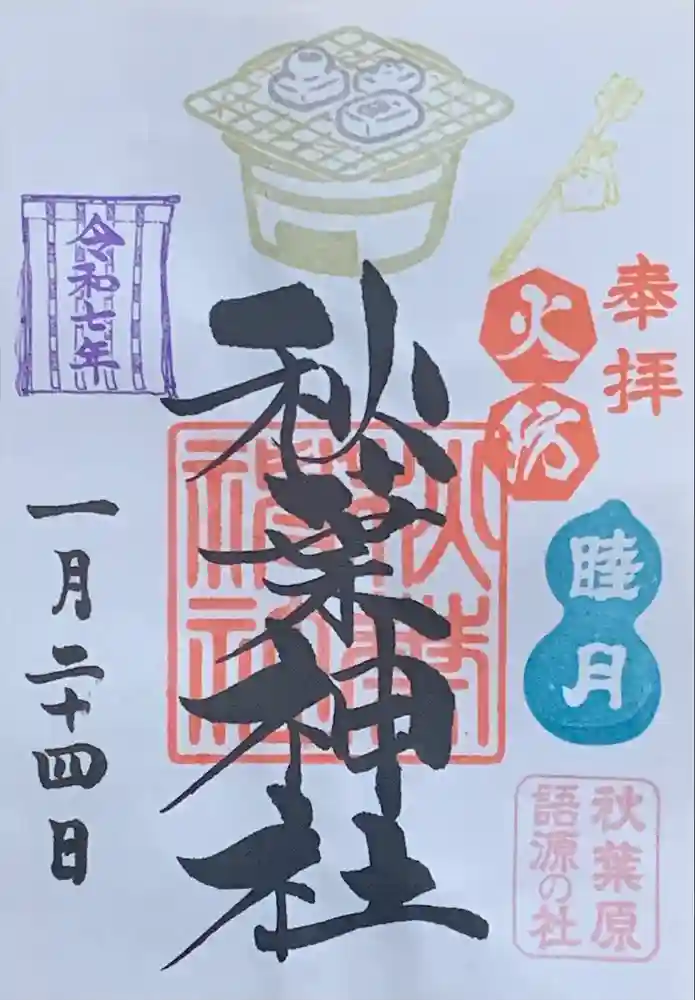 奉拝
火
防
睦月
秋葉原
語源の社
秋葉神社
秋葉
神社
令和七年
一月二十四日